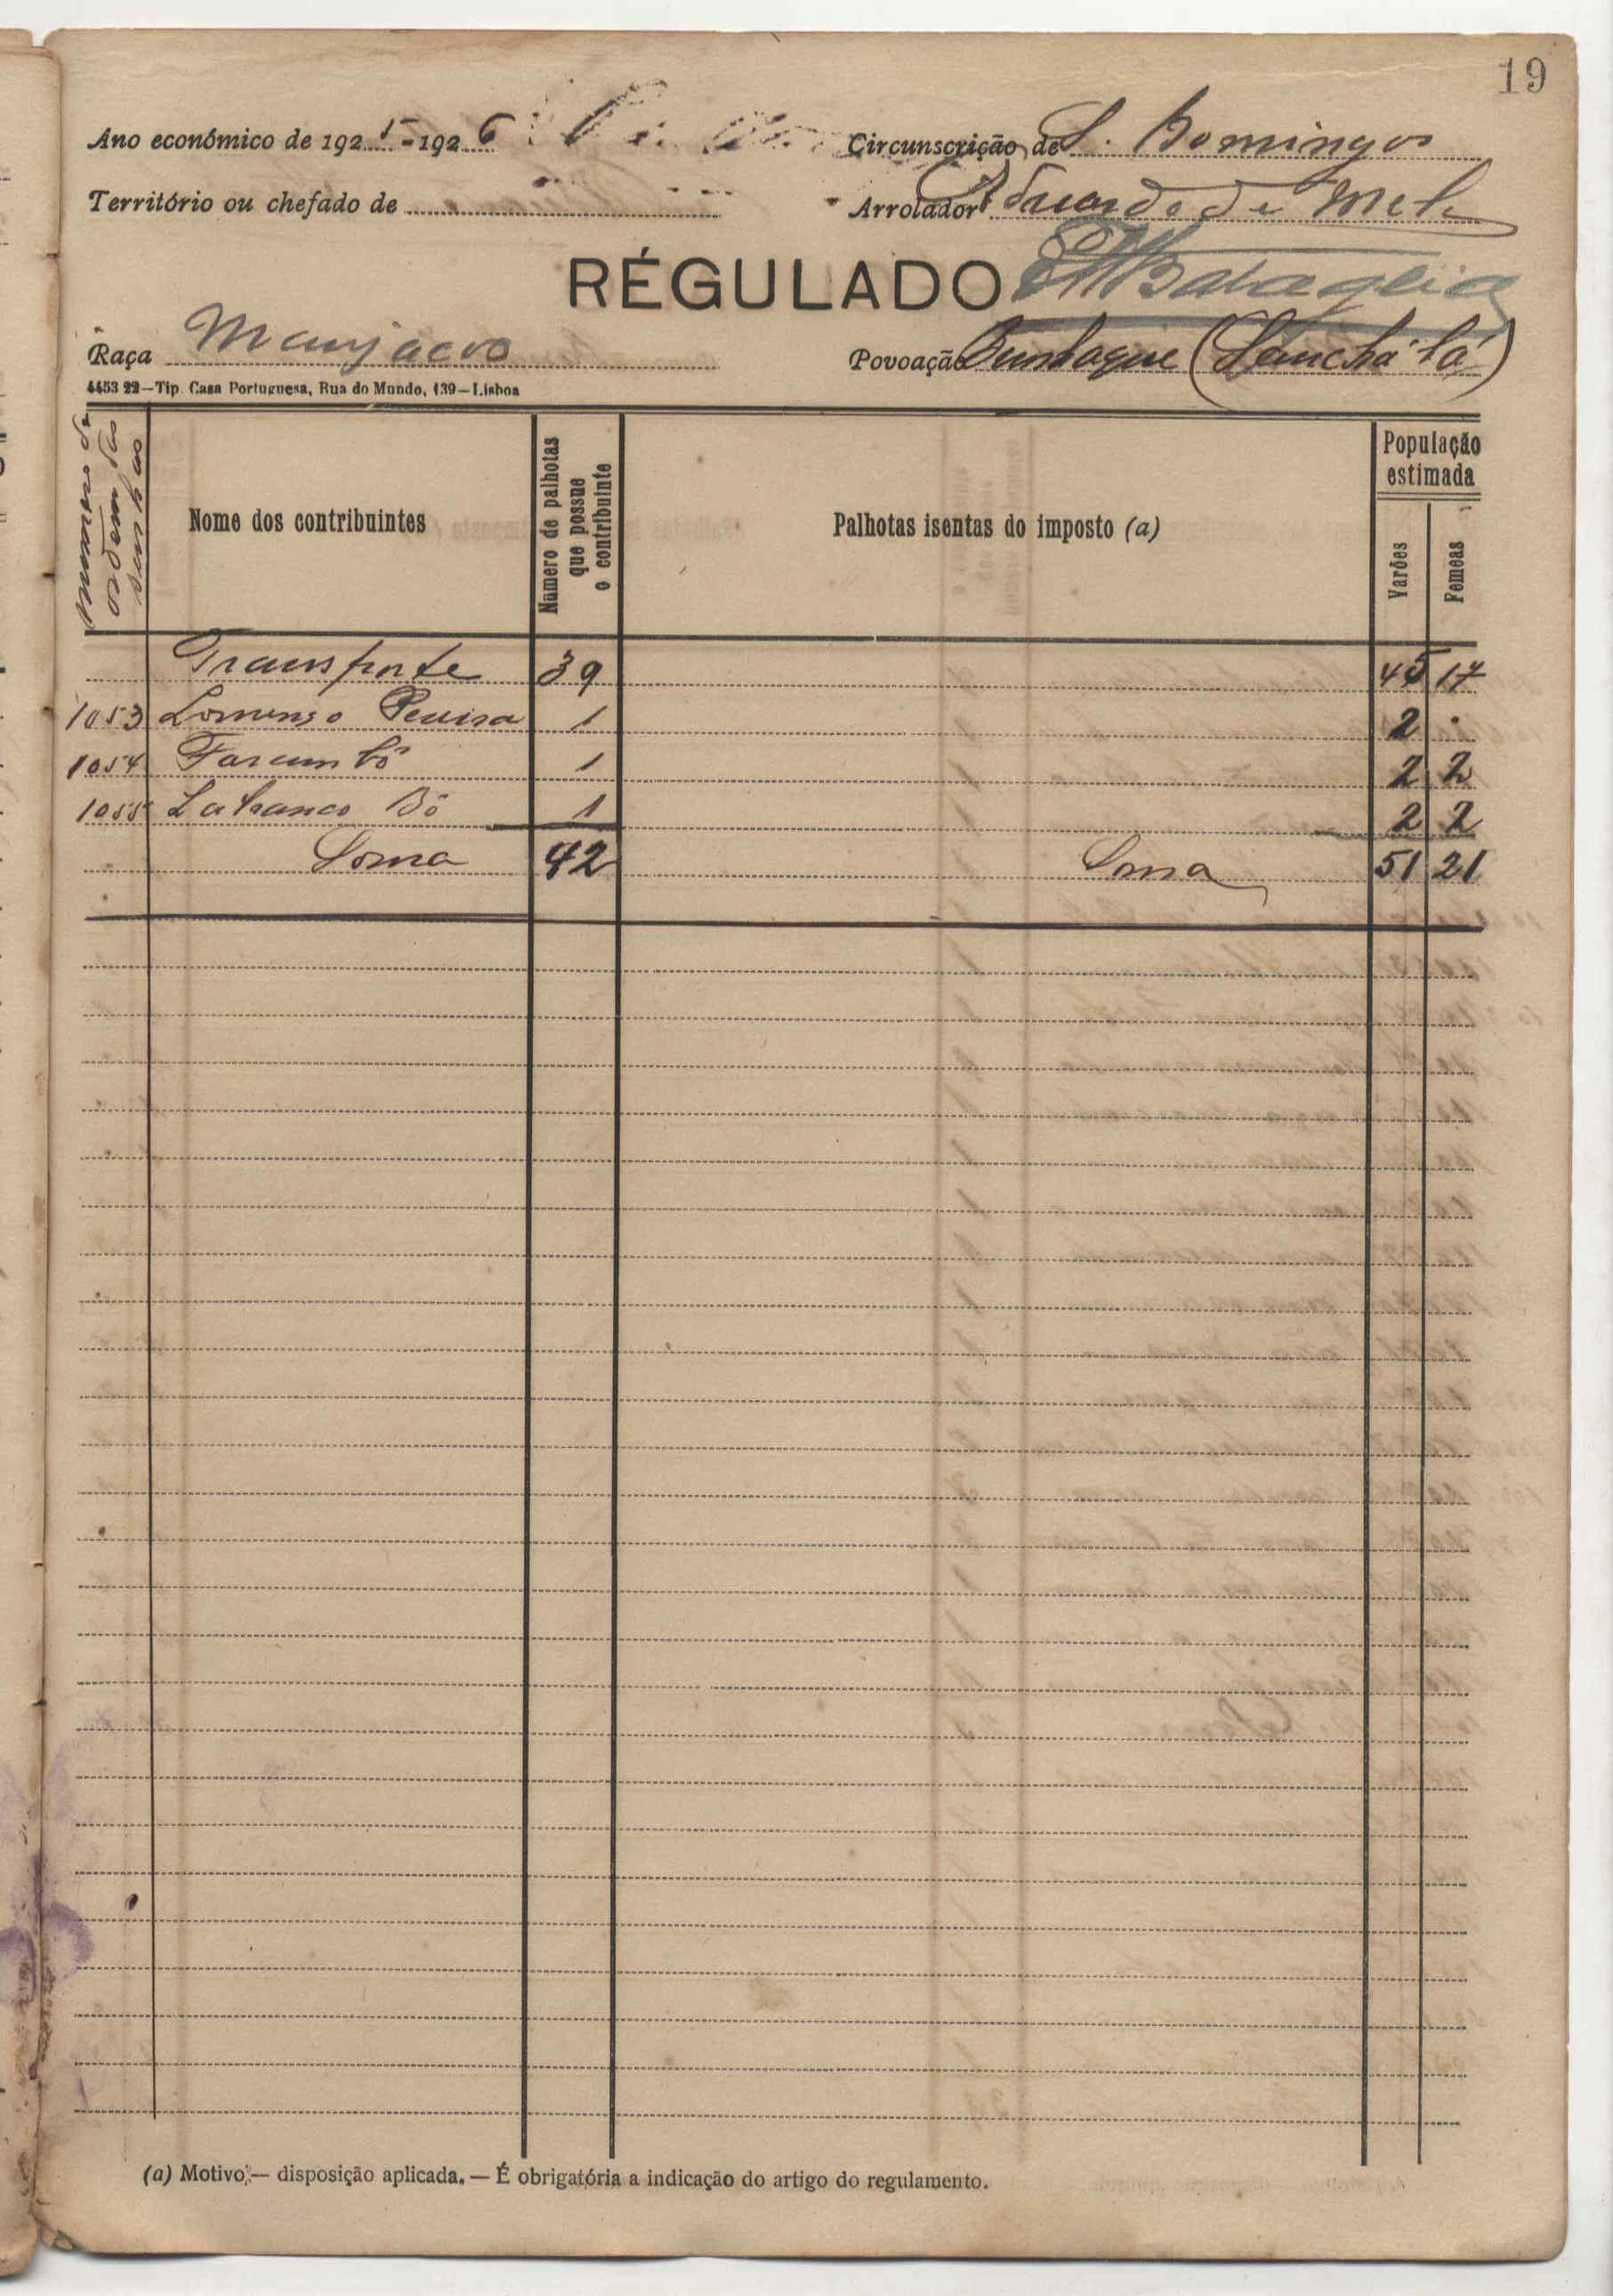 19
Ano económico de 1925-1926 Circunscrição de S. Domingos
Território ou chefado de Arrolador Eduardo de Melo
RÉGULADO
Raça Manjacos Povoação (Sanchá lá)
4453 22—Tip. Casa Portuguesa, Rua do Mundo, 139—Lisboa
Numeros
Nome dos contribuintes
Número de palhotas que possue o contribuinte
Palhotas isentas do imposto (a)
População estimada
Varões
Femeas
Transporte 39 45 17
1053 1 2 .
1054 1 2 2
1055 1 2 2
Soma 42 Soma 51 21
(a) Motivo,— disposição aplicada. — É obrigatória a indicação do artigo do regulamento.